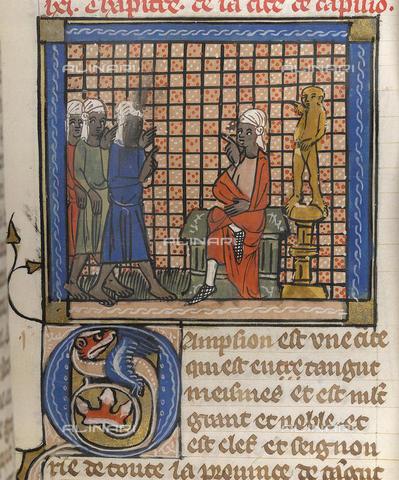 bei. Chapitre. de la cite de capisio.
ALINARI
ALINARI
ALINARI
Campsion est une cite
qui est entre tangut
meismes et est mlt
grant et noble. et
est clef et seignou
rie de toute la prouince de tāgut
ALINARI
ALINARI